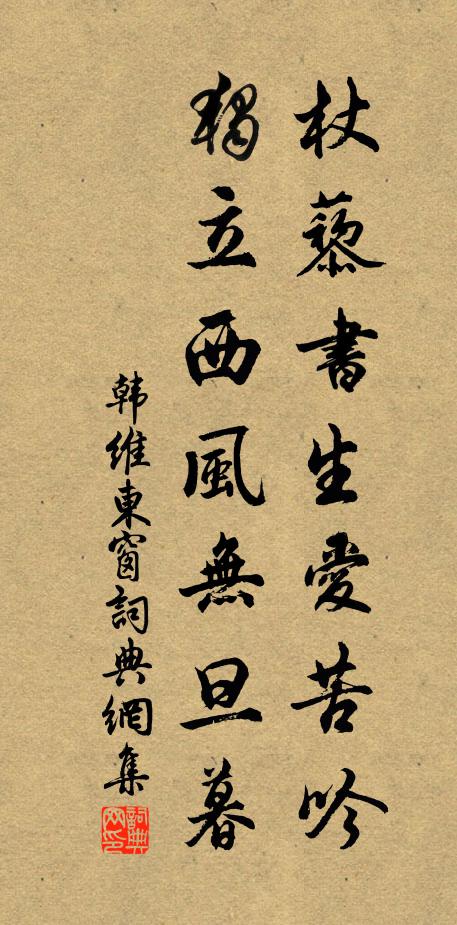 杖藜書生愛苦吟
獨立西風無旦暮
韩維東窗詞典網集
詞典网印